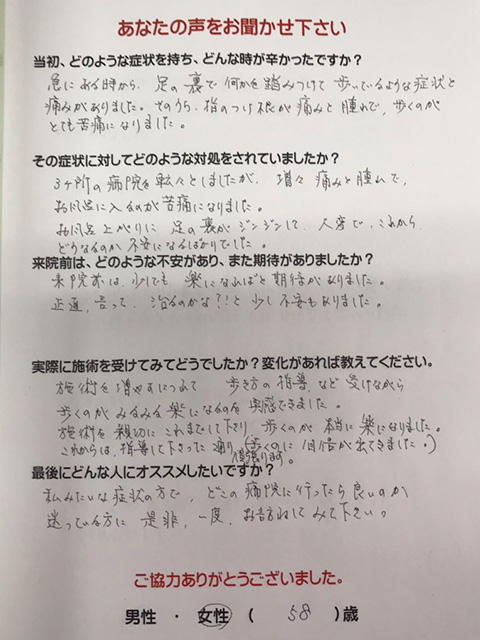 あなたの声をお聞かせ下さい
当初、どのような症状を持ち、どんな時が辛かったですか？
急にある時から、足の裏で何かを踏みつけて歩いているような症状と
痛みがありました。そのうち、指のつけ根が痛みと腫れで、歩くのが
とても苦痛になりました。
その症状に対してどのような対処をされていましたか？
3ヶ所の病院を転々としましたが、増々痛みと腫れで、
お風呂に入るのが苦痛になりました。
お風呂上がりに足の裏がジンジンして、大変で、これから、
どうなるのか不安になるばかりでした。
来院前は、どのような不安があり、また期待がありましたか？
来院前は、少しでも楽になればと期待がありました。
正直、言って、治るのかな？！と少し不安もありました。
実際に施術を受けてみてどうでしたか？変化があれば教えてください。
施術を増やすにつれて 歩き方の指導など受けながら
歩くのがみるみる楽になるのを実感できました。
施術を親切にこれまでして下さり、歩くのが本当に楽になりました。
これからは、指導して下さった通り、(歩くのに自信が出てきました。)
頑張ります。
最後にどんな人にオススメしたいですか？
私みたいな症状の方で、どこの病院に行ったら良いのか
迷っている方に是非、一度、お訪ねしてみて下さい。
ご協力ありがとうございました。
男性 ・ 女性 ( 58 )歳